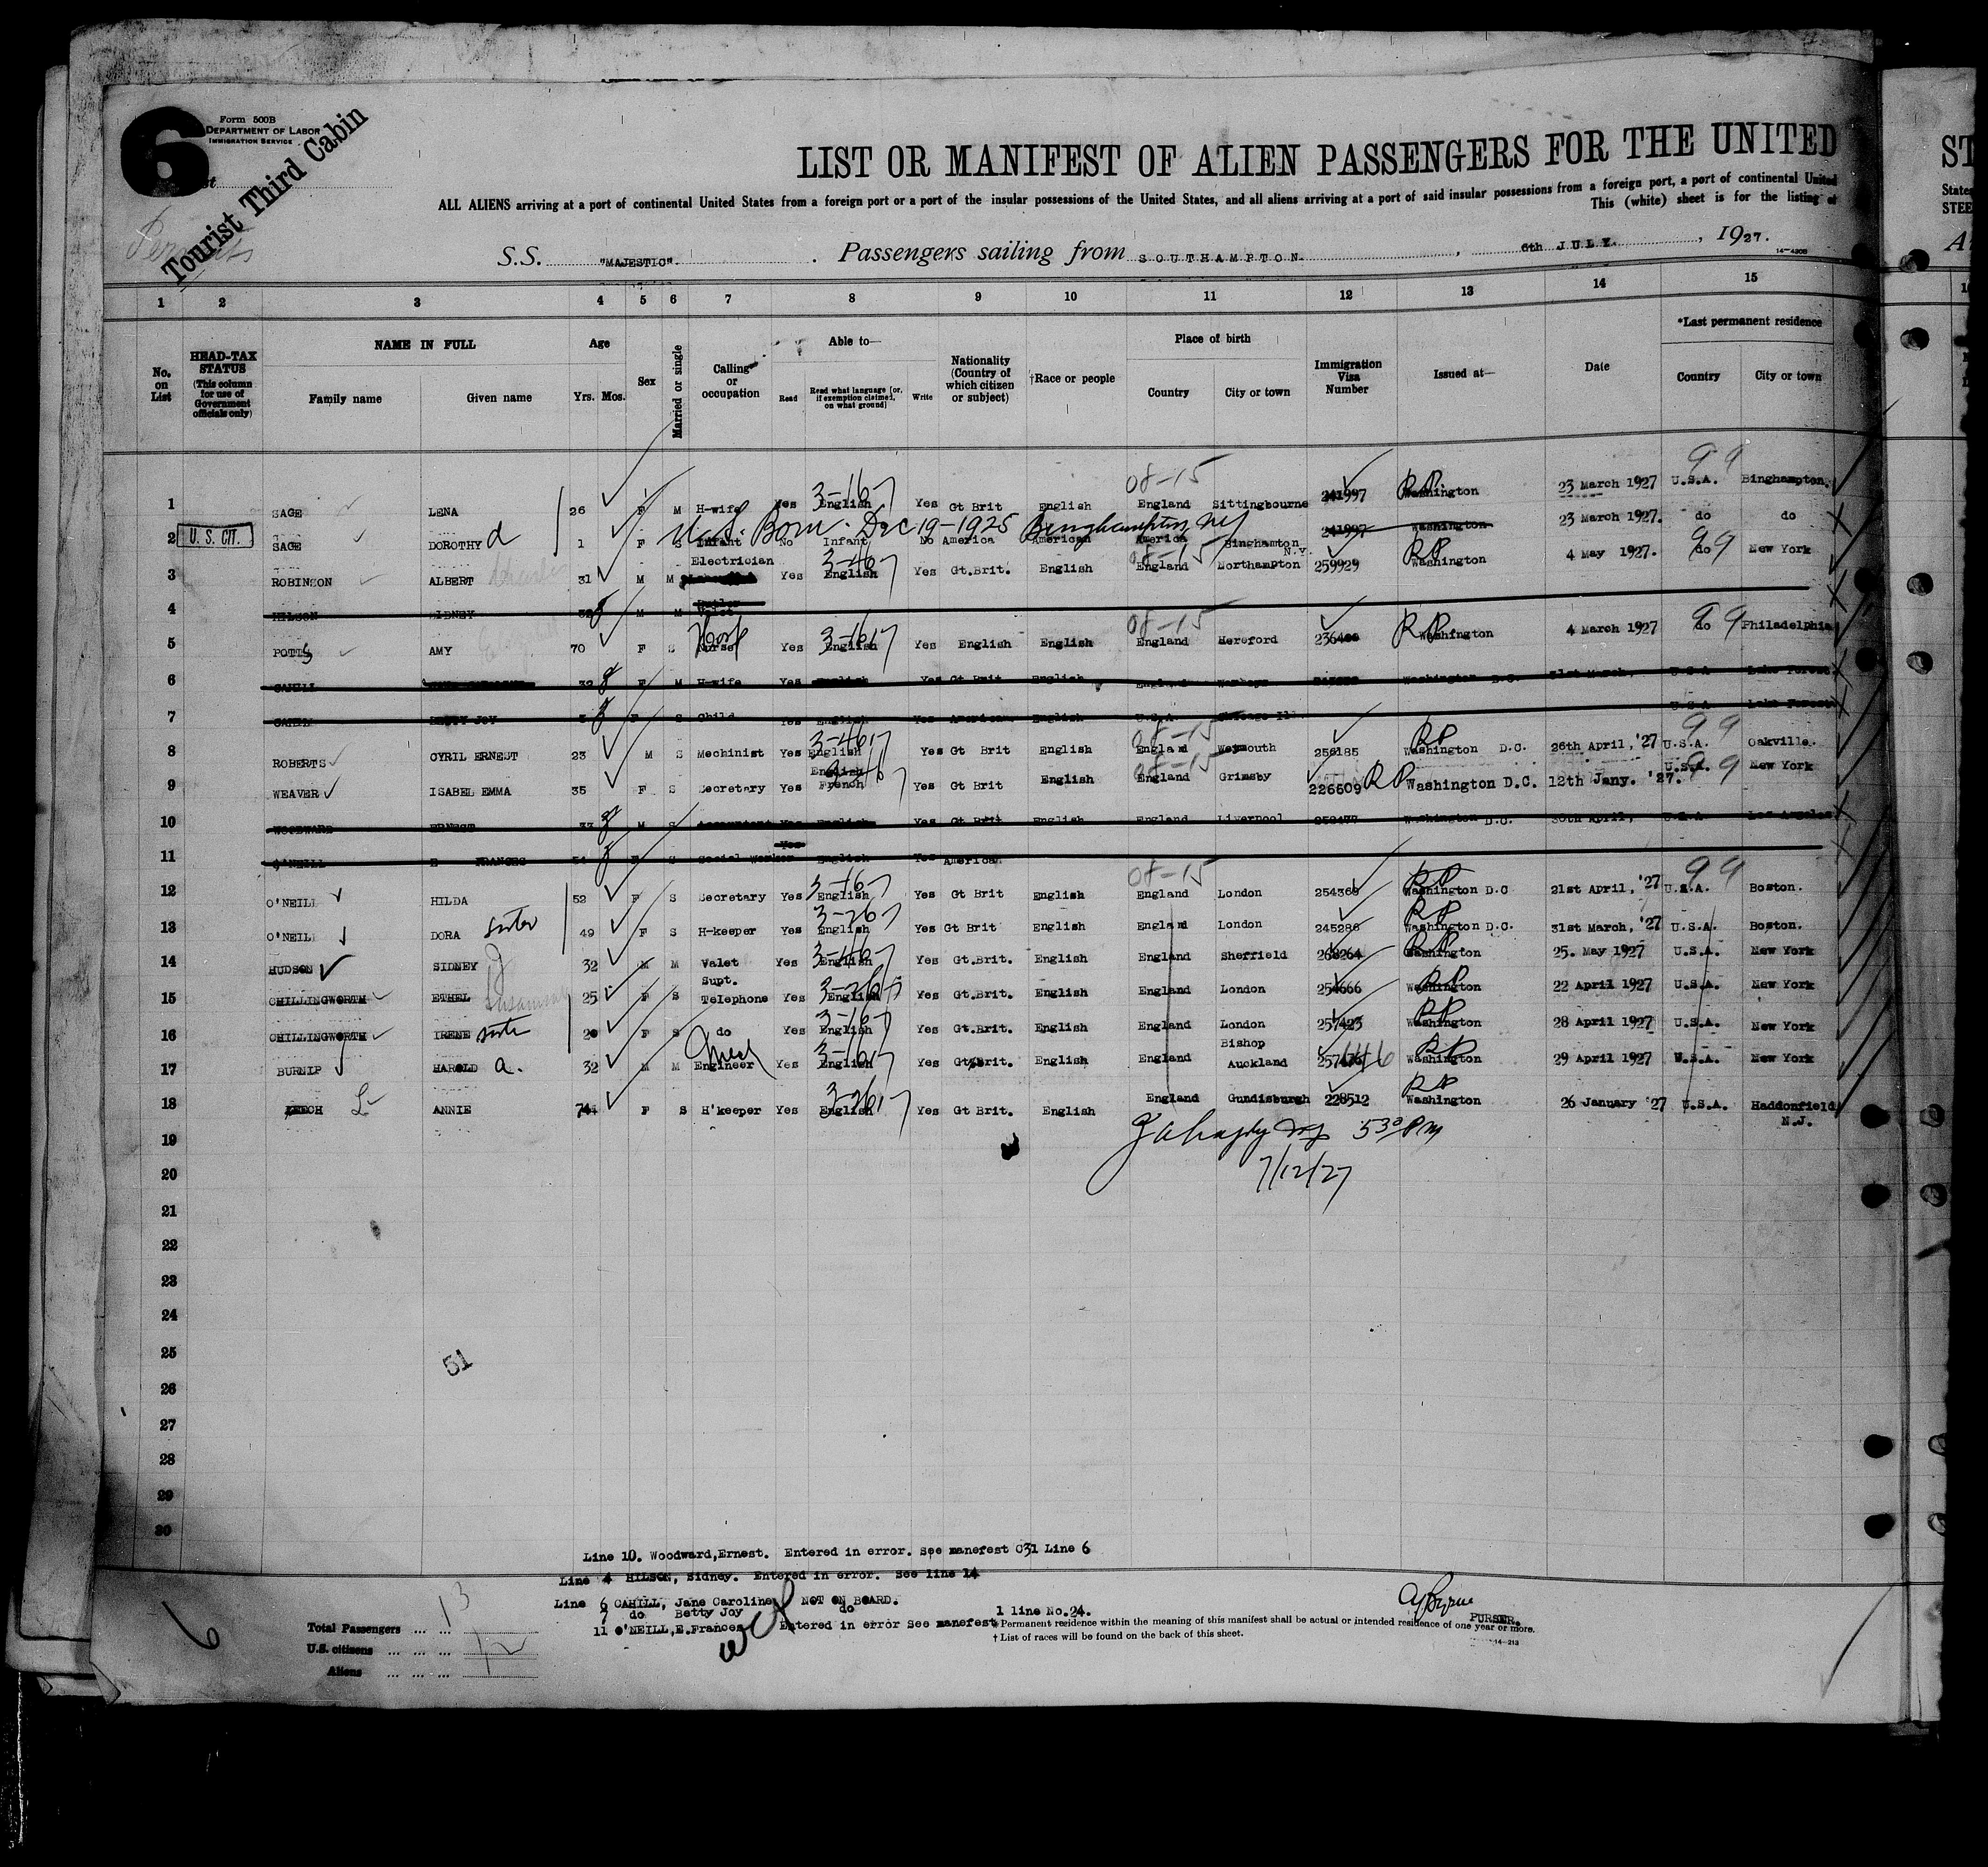 6
Form 500B
DEPARTMENT OF LABOR
IMMIGRATION SERVICE
Tourist Third Cabin
Permits
LIST OR MANIFEST OF ALIEN PASSENGERS FOR THE UNITED
ALL ALIENS arriving at a port of continental United States from a foreign port or a port of the insular possessions of the United States, and all aliens arriving at a port of said insular possessions from a foreign port, a port of continental United
This (white) sheet is for the listing of
S.S. "MAJESTIC". Passengers sailing from SOUTHAMPTON. , 6th JULY. , 1927.
1 2 3 4 5 6 7 8 9 10 11 12 13 14 15
No. on List
HEAD-TAX STATUS (This column for use of Government officials only)
NAME IN FULL
Family name Given name
Age Yrs. Mos.
Sex
Married or single
Calling or occupation
Able to—
Read Read what language (or, if exemption claimed, on what ground) Write
Nationality (Country of which citizen or subject)
†Race or people
Place of birth
Country City or town
Immigration Visa Number
Issued at—
Date
*Last permanent residence
Country City or town
1 SAGE LENA 26 F M H-wife Yes English Yes Gt Brit English England Sittingbourne 241997 Washington 23 March 1927 U.S.A. Binghampton.
U.S. Born Dec 19-1925 Binghampton NY
2 U. S. CIT. SAGE DOROTHY d 1 F S Infant No Infant No America American America Binghamton N.Y. 241997 Washington 23 March 1927. do do
3 ROBINSON ALBERT 31 M M Electrician Yes English Yes Gt.Brit. English England Northampton 259929 Washington 4 May 1927. do New York
4 HILSON SIDNEY M M Valet
5 POTTS AMY 70 F S Nurse Yes English Yes English English England Hereford Washington 4 March 1927 do Philadelphia
6 CAHILL 32 F M H-wife Yes English Yes Gt Brit English England Washington D.C. 31st March, U.S.A Lake Forest
7 CAHILL BETTY JOY F S Child Yes English Yes American English U.S.A. Chicago Ill. U.S.A Lake Forest
8 ROBERTS CYRIL ERNEST 23 M S Mechinist Yes English Yes Gt Brit English England Weymouth 256185 Washington D.C. 26th April, '27 U.S.A. Oakville.
9 WEAVER ISABEL EMMA 35 F S Secretary Yes English French Yes Gt Brit English England Grimsby 226609 Washington D.C. 12th Jany. '27. U.S.A. New York
10 WOODWARD ERNEST 33 M S Accountant Yes English Yes Gt Brit English England Liverpool Washington D.C. 30th April, U.S.A Los Angeles
11 O'NEILL E FRANCES F S Social Worker Yes English Yes American
12 O'NEILL HILDA 52 F S Secretary Yes English Yes Gt Brit English England London 254369 Washington D.C 21st April, '27 U.S.A. Boston.
13 O'NEILL DORA sister 49 F S H-keeper Yes English Yes Gt Brit English England London 245286 Washington D.C. 31st March, '27 U.S.A. Boston.
14 HUDSON SIDNEY 32 M M Valet Yes English Yes Gt.Brit. English England Sheffield 268264 Washington 25. May 1927 U.S.A. New York
15 CHILLINGWORTH ETHEL 25 F S Supt. Telephone Yes English Yes Gt.Brit. English England London 254666 Washington 22 April 1927 U.S.A. New York
16 CHILLINGWORTH IRENE sister 20 F S do Yes English Yes Gt.Brit. English England London 257423 Washington 28 April 1927 U.S.A. New York
17 BURNIP HAROLD a. 32 M M Engineer Yes English Yes Gt.Brit. English England Bishop Auckland Washington 29 April 1927 U.S.A. New York
18 LEECH ANNIE 74 F S H'keeper Yes English Yes Gt Brit. English England Gundisburgh 228512 Washington 26 January '27 U.S.A. Haddonfield N.J.
19 5 30 PM
20 7/12/27
21
22
23
24
25 51
26
27
28
29
30
Line 10. Woodward,Ernest. Entered in error. See manefest C31 Line 6
Line 4 HILSON, Sidney. Entered in error. See line 14
Line 6 CAHILL, Jane Caroline NOT ON BOARD.
7 do Betty Joy do
11 O'NEILL,E.Frances Entered in error See manefest 1 line No.24.
PURSER.
Total Passengers ... ... 13
U.S. citizens ... ... ... 12
Aliens ... ... ...
6
* Permanent residence within the meaning of this manifest shall be actual or intended residence of one year or more.
† List of races will be found on the back of this sheet.